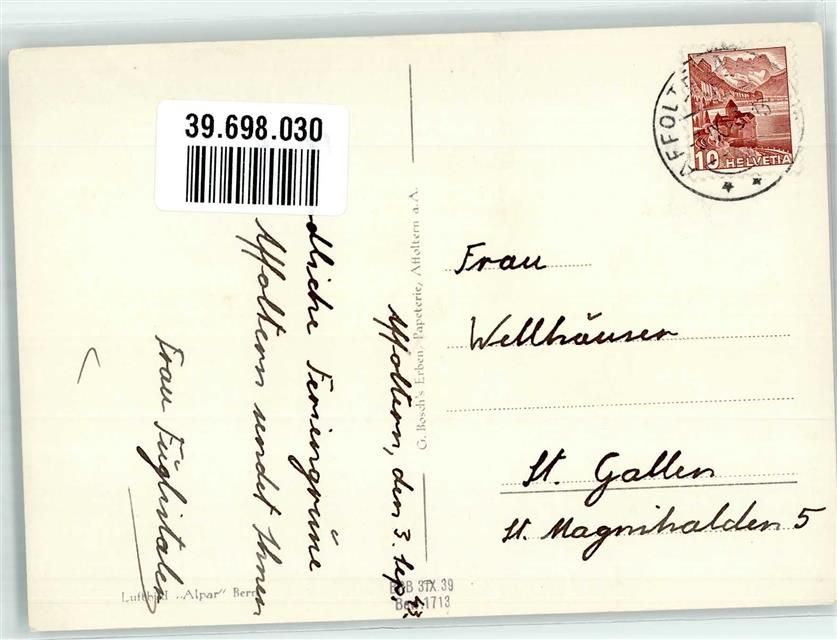 39.698.030
AFFOLT
10 HELVETIA
Affoltern, den 3. Sep. 43.
dliche Feriengrüne
Affoltern sendet Ihnen
Frau
G. Bosch's Erben, Papeterie, Affoltern a. A.
Luftbild „Alpar" Bern
39
1713
Frau
Wellhäuser
St. Gallen
St. Magnihalden 5